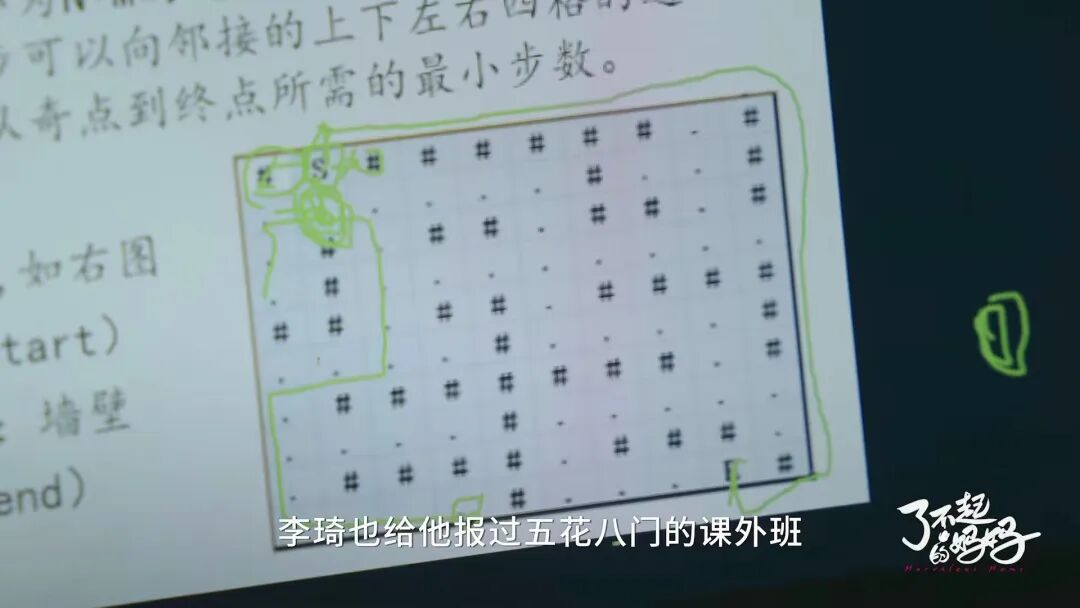 可以向邻接的上下左右四格的
从奇点到终点所需的最小步数。
# S # # # # # # . #
. . . . . . # . . #
. # . # # . # # . #
. # . . . . . . . .
# # . # # . # # # #
. . . . # . . . . #
. # # # # # # # . #
. . . . # . . . . .
. # # # # . # # # .
. . . . # . . . E #
,如右图
tart)
: 墙壁
end)
李琦也给他报过五花八门的课外班
了不起
的妈妈
Marvelous Moms